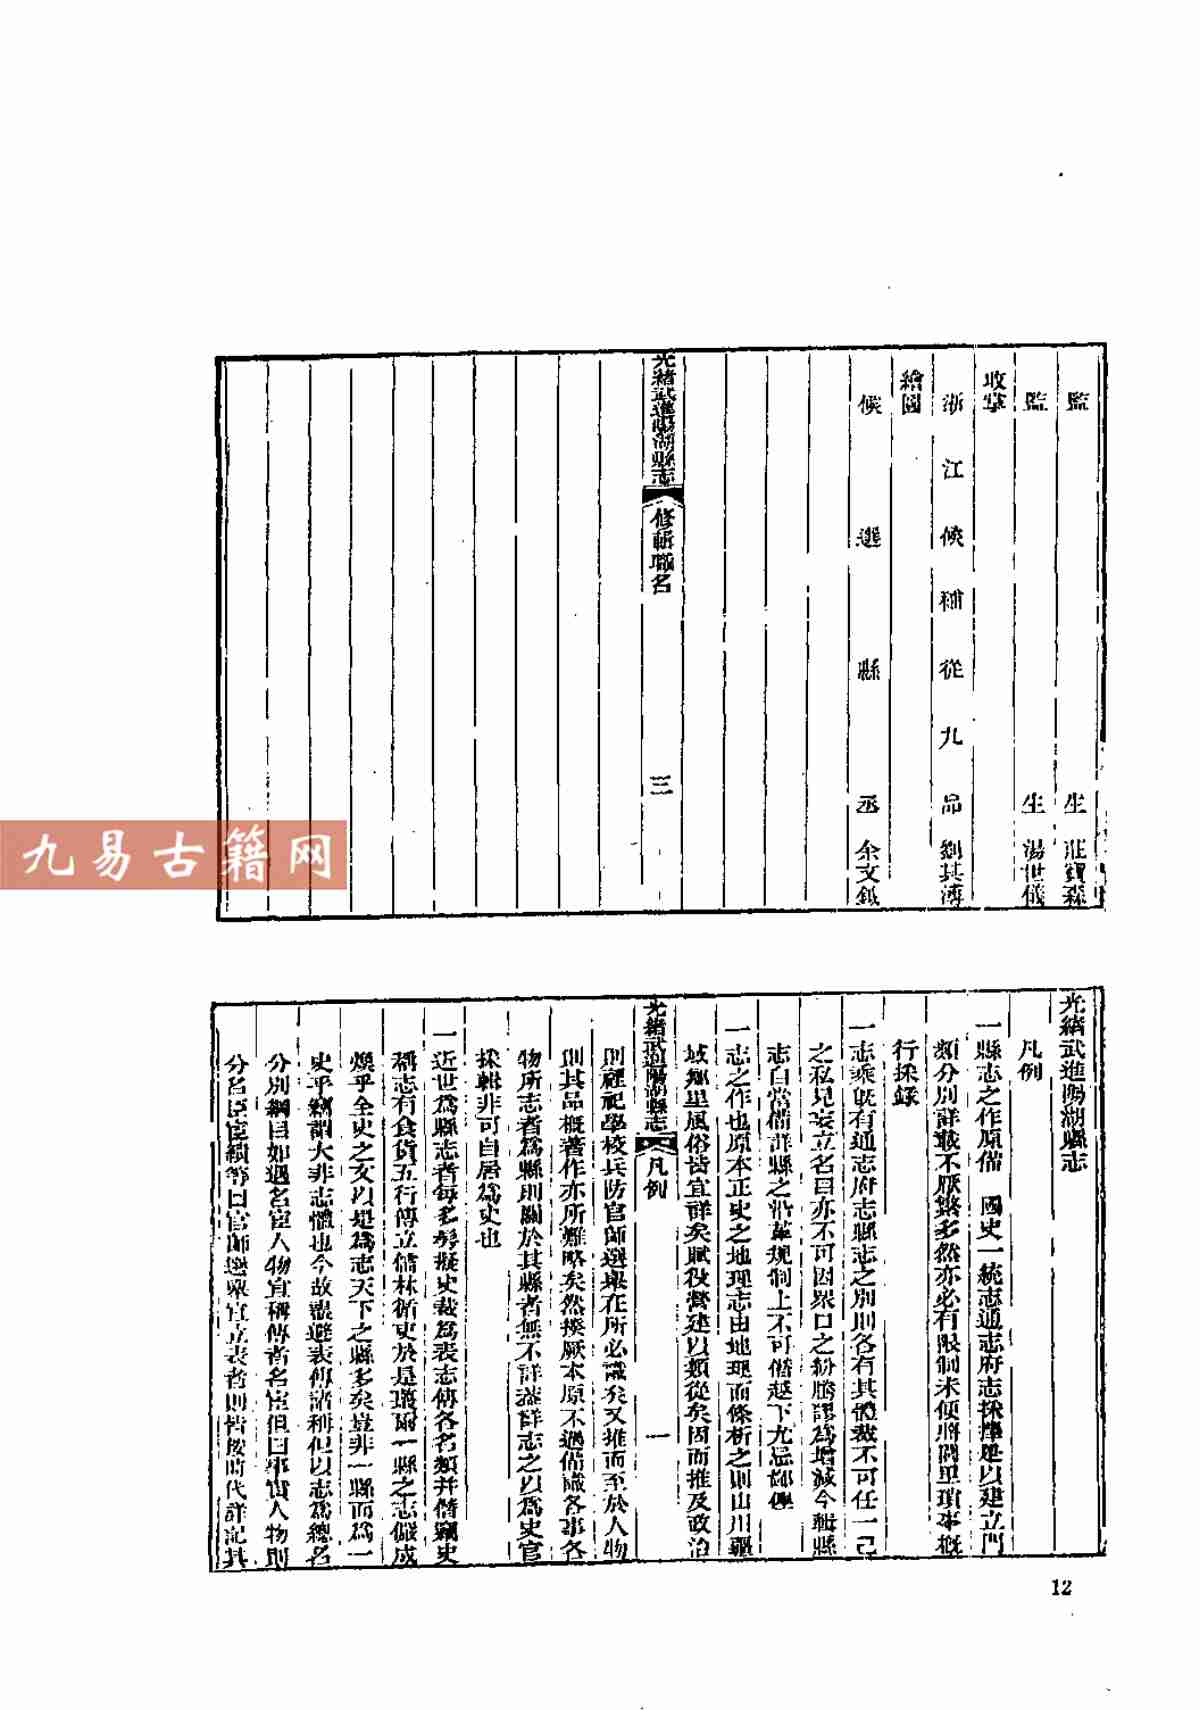 監生 莊寶森
監生 湯世儀
收掌
浙江候補從九品 劉其溥
繪圖
候選縣丞 余文鉞
光緒武進陽湖縣志 修輯職名 三
九易古籍网
光緒武進陽湖縣志
凡例
一縣志之作原備 國史一統志通志府志採擇是以建立門
類分別詳載不厭繁多然亦必有限制未便將閭里瑣事概
行採錄
一志乘既有通志府志縣志之別則各有其體裁不可任一己
之私見妄立名目亦不可因眾口之紛騰謬為增減今輯縣
志自當備詳縣之沿革規制上不可僭越下尤忌鄙俚
一志之作也原本正史之地理志由地理而條析之則山川疆
域鄉里風俗皆宜詳矣賦役營建以類從矣因而推及政治
光緒武進陽湖縣志 凡例 一
則禋祀學校兵防官師選舉在所必識矣又推而至於人物
則其品概著作亦所難略矣然揆厥本原不過備識各事各
物所志者為縣則關於其縣者無不詳蓋詳志之以為史官
採輯非可自居為史也
一近世為縣志者每多剪擬史裁為表志傳各名類并僭竊史
稱志有食貨五行傳立儒林循吏於是叢爾一縣之志儼成
煥乎全史之文以是為志天下之縣多矣豈非一縣而為一
史乎竊謂大非志體也今故謹避表傳諸稱但以志為總名
分別綱目如遇名宦人物宜稱傳者名宦但曰事實人物則
分名臣宦績等曰官師選舉宜立表者則皆按時代詳記其
12